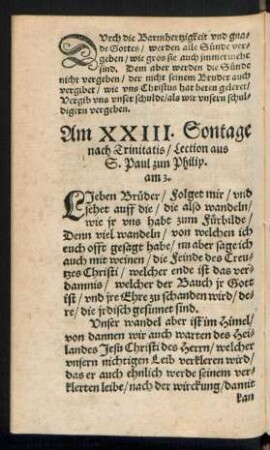 DUrch die Barmhertzigkeit vnd gna-
de Gottes / werden alle Sünde ver-
geben / wie gros sie auch jmmermehr
sind. Dem aber werden die Sünde
nicht vergeben / der nicht seinem Bruder auch
vergibet / wie vns Christus hat beten geleret /
Vergib vns vnser schulde / als wir vnsern schul-
digern vergeben.
Am XXIII. Sontage
nach Trinitatis / Lection aus
S. Paul zun Philip.
am 3.
LIeben Brüder / Folget mir / vnd
sehet auff die / die also wandeln /
wie jr vns habt zum Fürbilde /
Denn viel wandeln / von welchen ich
euch offt gesagt habe / nu aber sage ich
auch mit weinen / die Feinde des Creu-
tzes Christi / welcher ende ist das ver-
damnis / welcher der Bauch jr Gott
ist / vnd jre Ehre zu schanden wird / de-
re / die jrdisch gesinnet sind.
Vnser wandel aber ist im Himel /
von dannen wir auch warten des Hei-
landes Jesu Christi des Herrn / welcher
vnsern nichtigen Leib verkleren wird /
das er auch ehnlich werde seinem ver-
klerten leibe / nach der wirckung / damit
kan